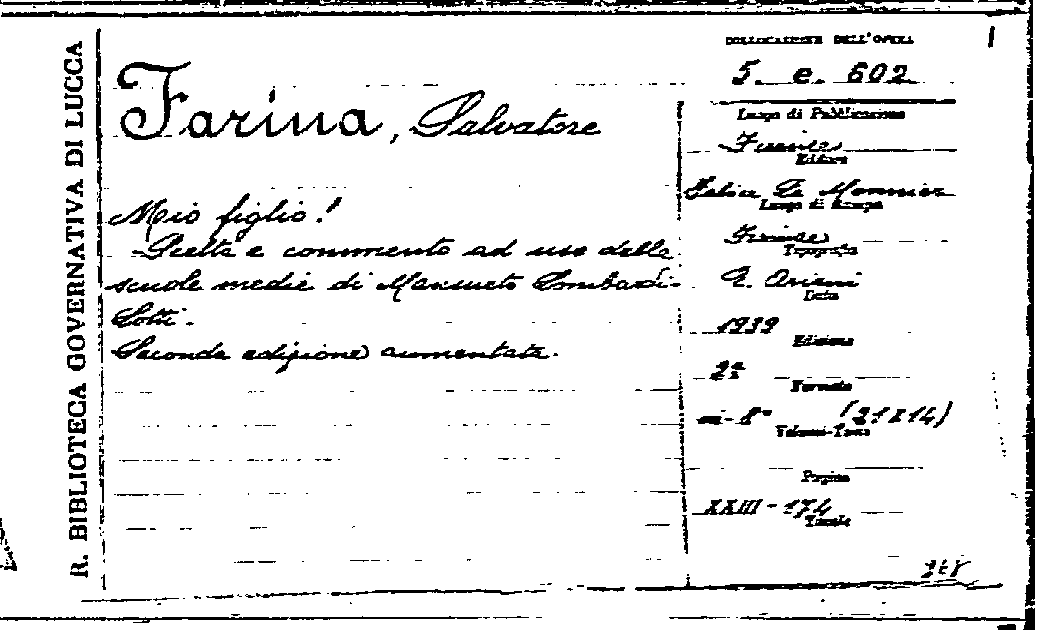 R. BIBLIOTECA GOVERNATIVA DI LUCCA
Farina, Salvatore
Mio figlio!
Scelta e commento ad uso delle
scuole medie di Mansueto Lombardi-
Lotti.
Seconda edizione aumentata.
COLLOCAZIONE DELL'OPERA
5. e. 602
Luogo di Pubblicazione
Firenze
Editore
Felice Le Monnier
Luogo di Stampa
Firenze
Tipografia
E. Ariani
Data
1939
Edizione
2ª
Formato
in-8° (21x14)
Volumi-Tomo
Pagine
XXIII - 174